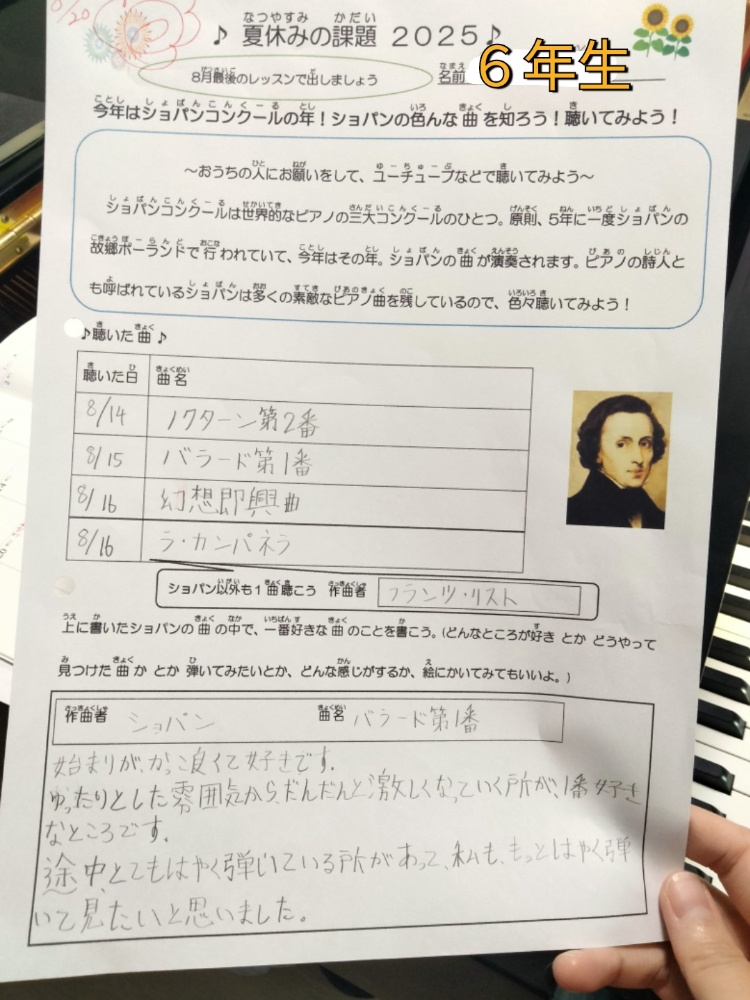 8/20
♪ 夏休みの課題 2025♪
8月最後のレッスンで出しましょう
名前 6年生
今年はショパンコンクールの年！ショパンの色んな曲を知ろう！聴いてみよう！
～おうちの人にお願いをして、ユーチューブなどで聴いてみよう～
ショパンコンクールは世界的なピアノの三大コンクールのひとつ。原則、5年に一度ショパンの
故郷ポーランドで行われていて、今年はその年。ショパンの曲が演奏されます。ピアノの詩人と
も呼ばれているショパンは多くの素敵なピアノ曲を残しているので、色々聴いてみよう！
♪聴いた曲♪
聴いた日 曲名
8/14 ノクターン第2番
8/15 バラード第1番
8/16 幻想即興曲
8/16 ラ・カンパネラ
ショパン以外も1曲聴こう 作曲者 フランツ・リスト
上に書いたショパンの曲の中で、一番好きな曲のことを書こう。(どんなところが好き とか どうやって
見つけた曲か とか 弾いてみたいとか、どんな感じがするか、絵にかいてみてもいいよ。)
作曲者 ショパン 曲名 バラード第1番
始まりが、かっこ良くて好きです。
ゆったりとした雰囲気から、だんだんと激しくなっていく所が、1番好き
なところです。
途中、とてもはやく弾いている所があって、私も、もっとはやく弾
いて見たいと思いました。